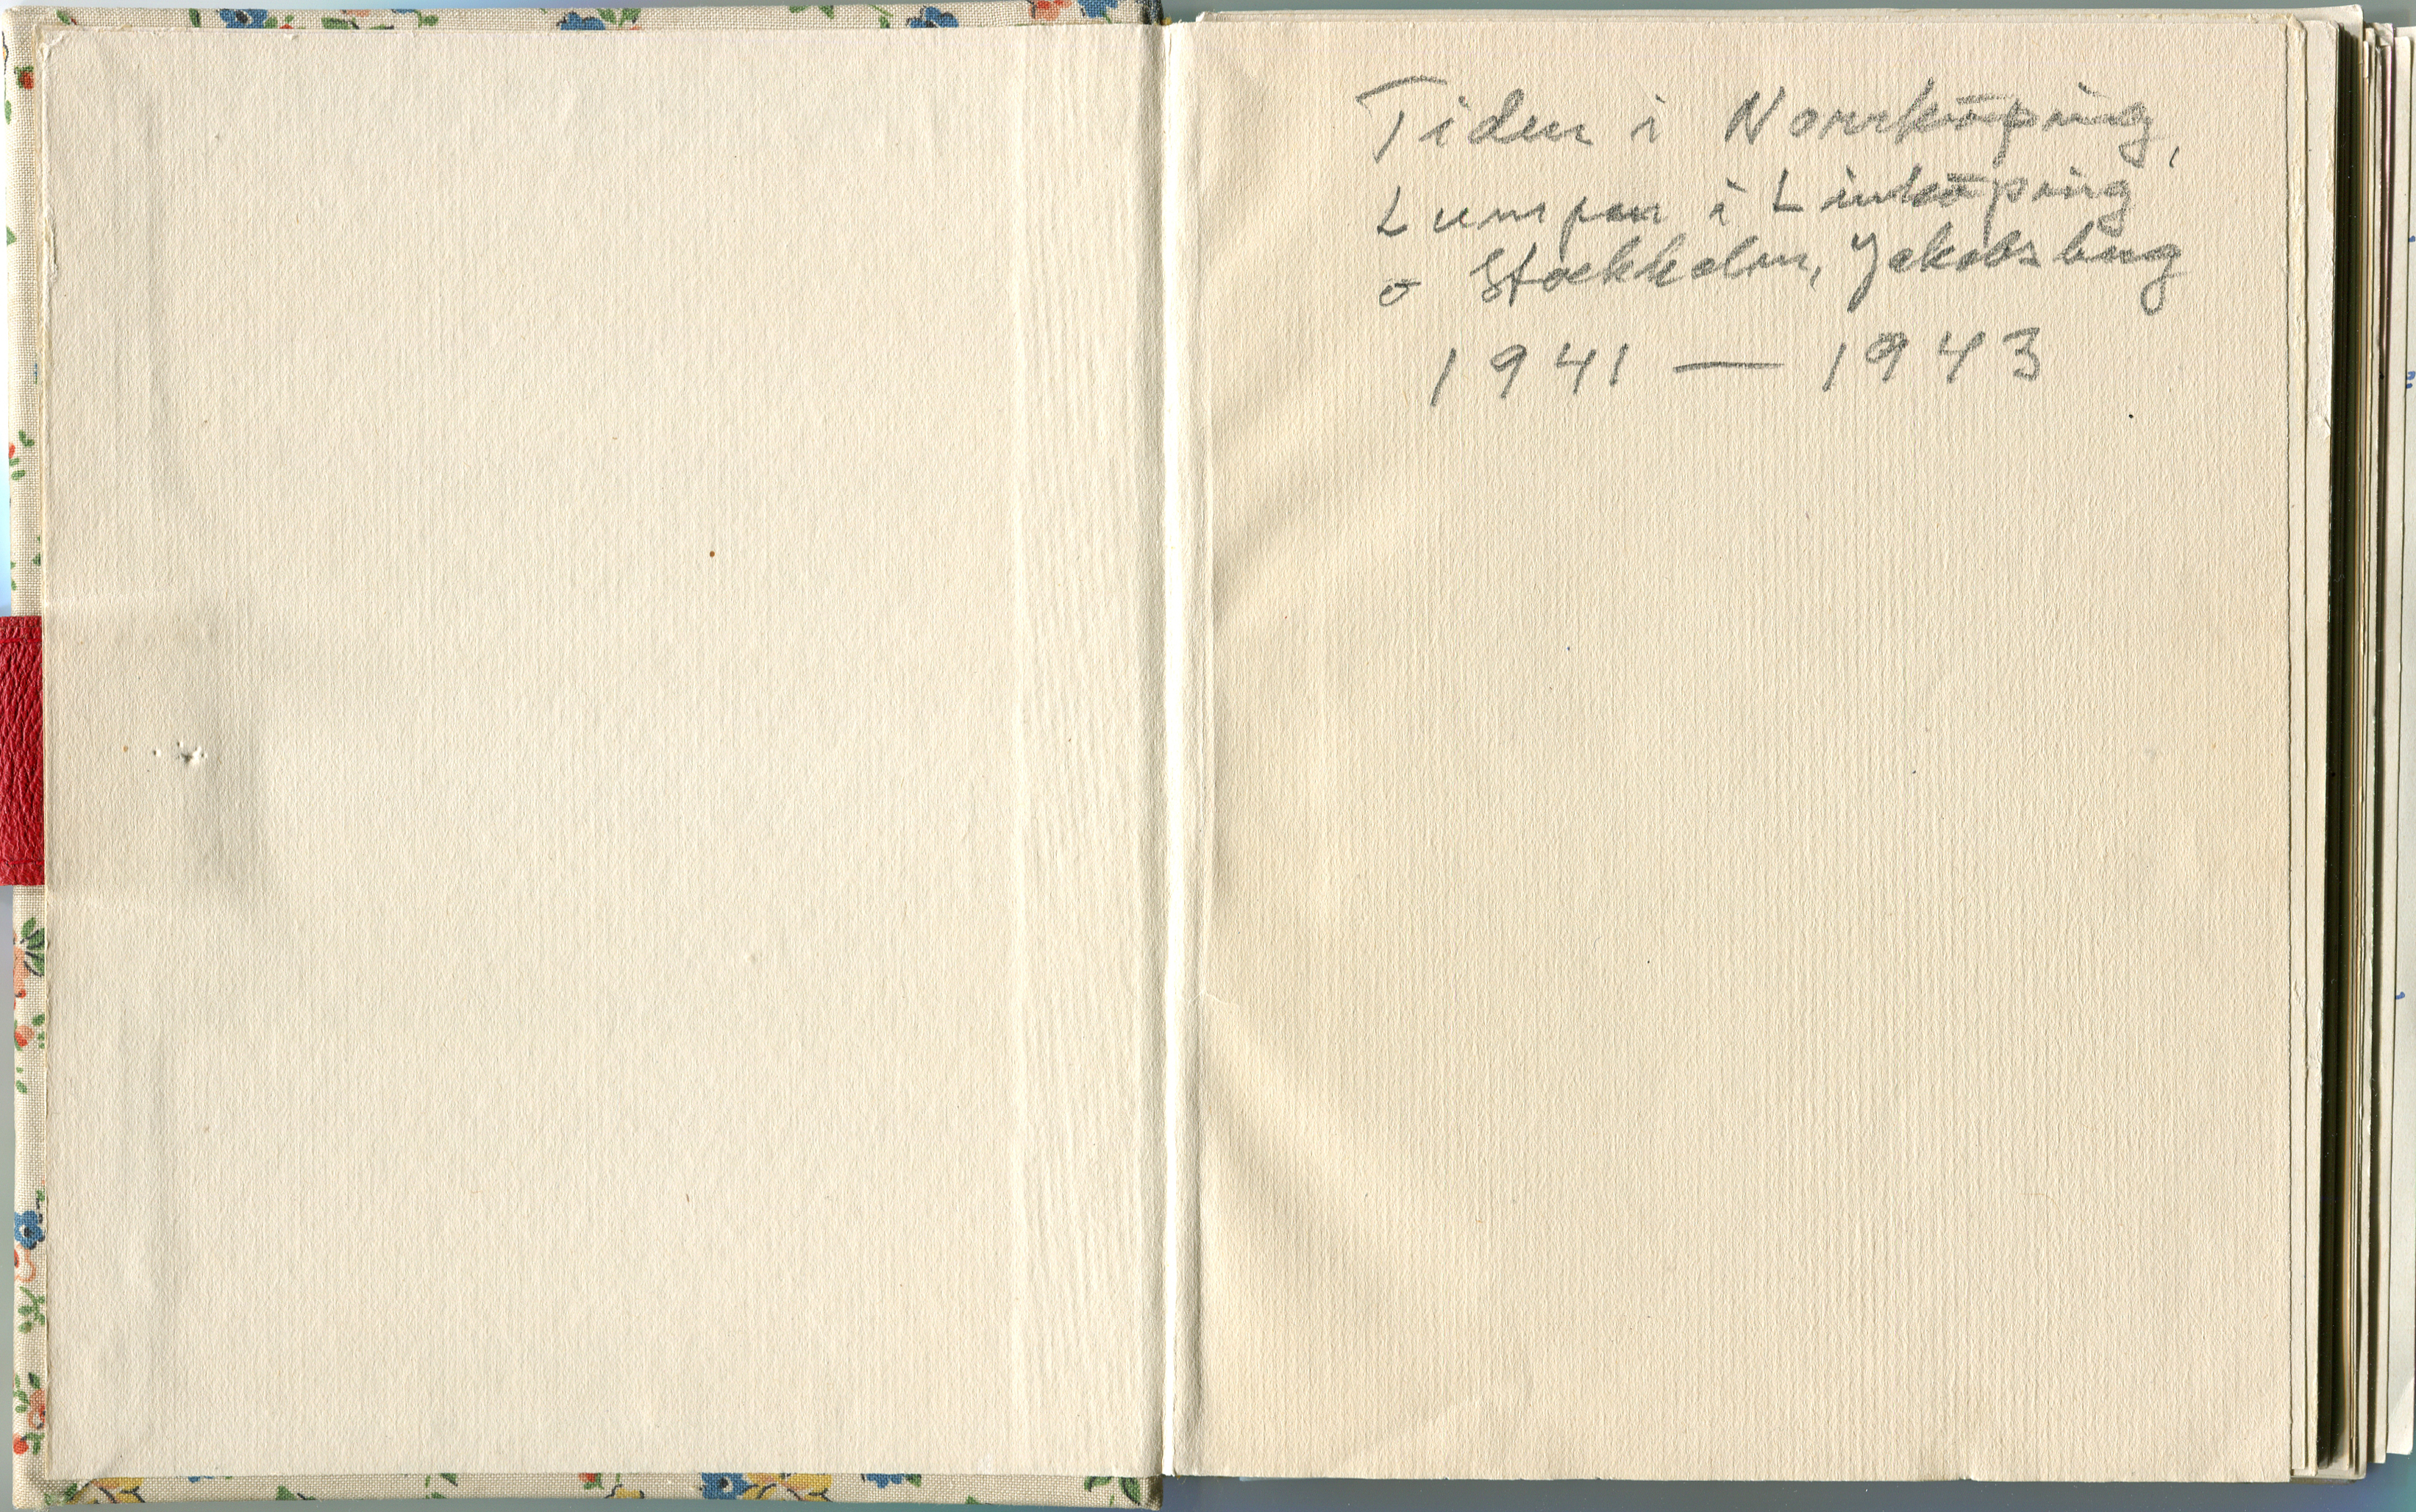 Tiden i Norrköping,
Lumpen i Linköping
o Stockholm, Jakobsberg
1941 — 1943